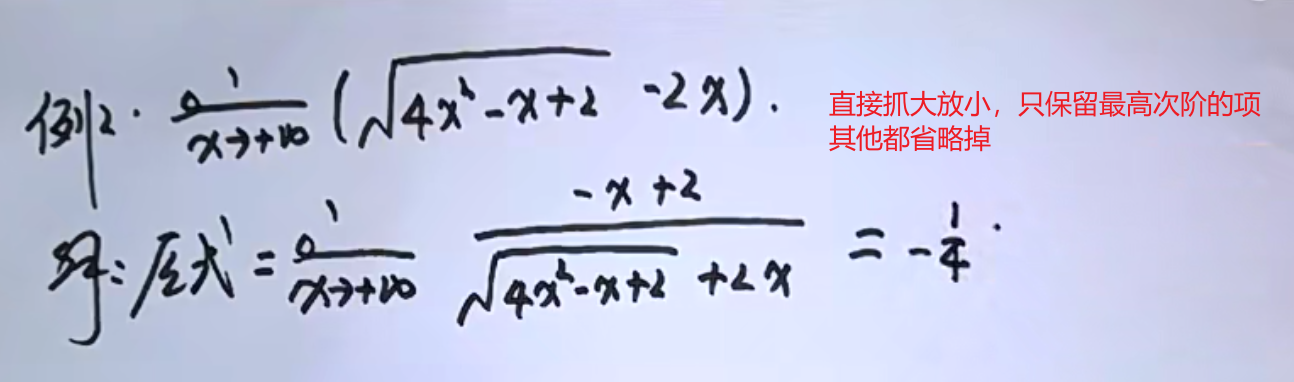 例2. lim x→+∞ (√(4x²-x+2) -2x).
直接抓大放小，只保留最高次阶的项
其他都省略掉
解: 原式 = lim x→+∞ (-x+2)/(√(4x²-x+2) +2x) = -1/4.